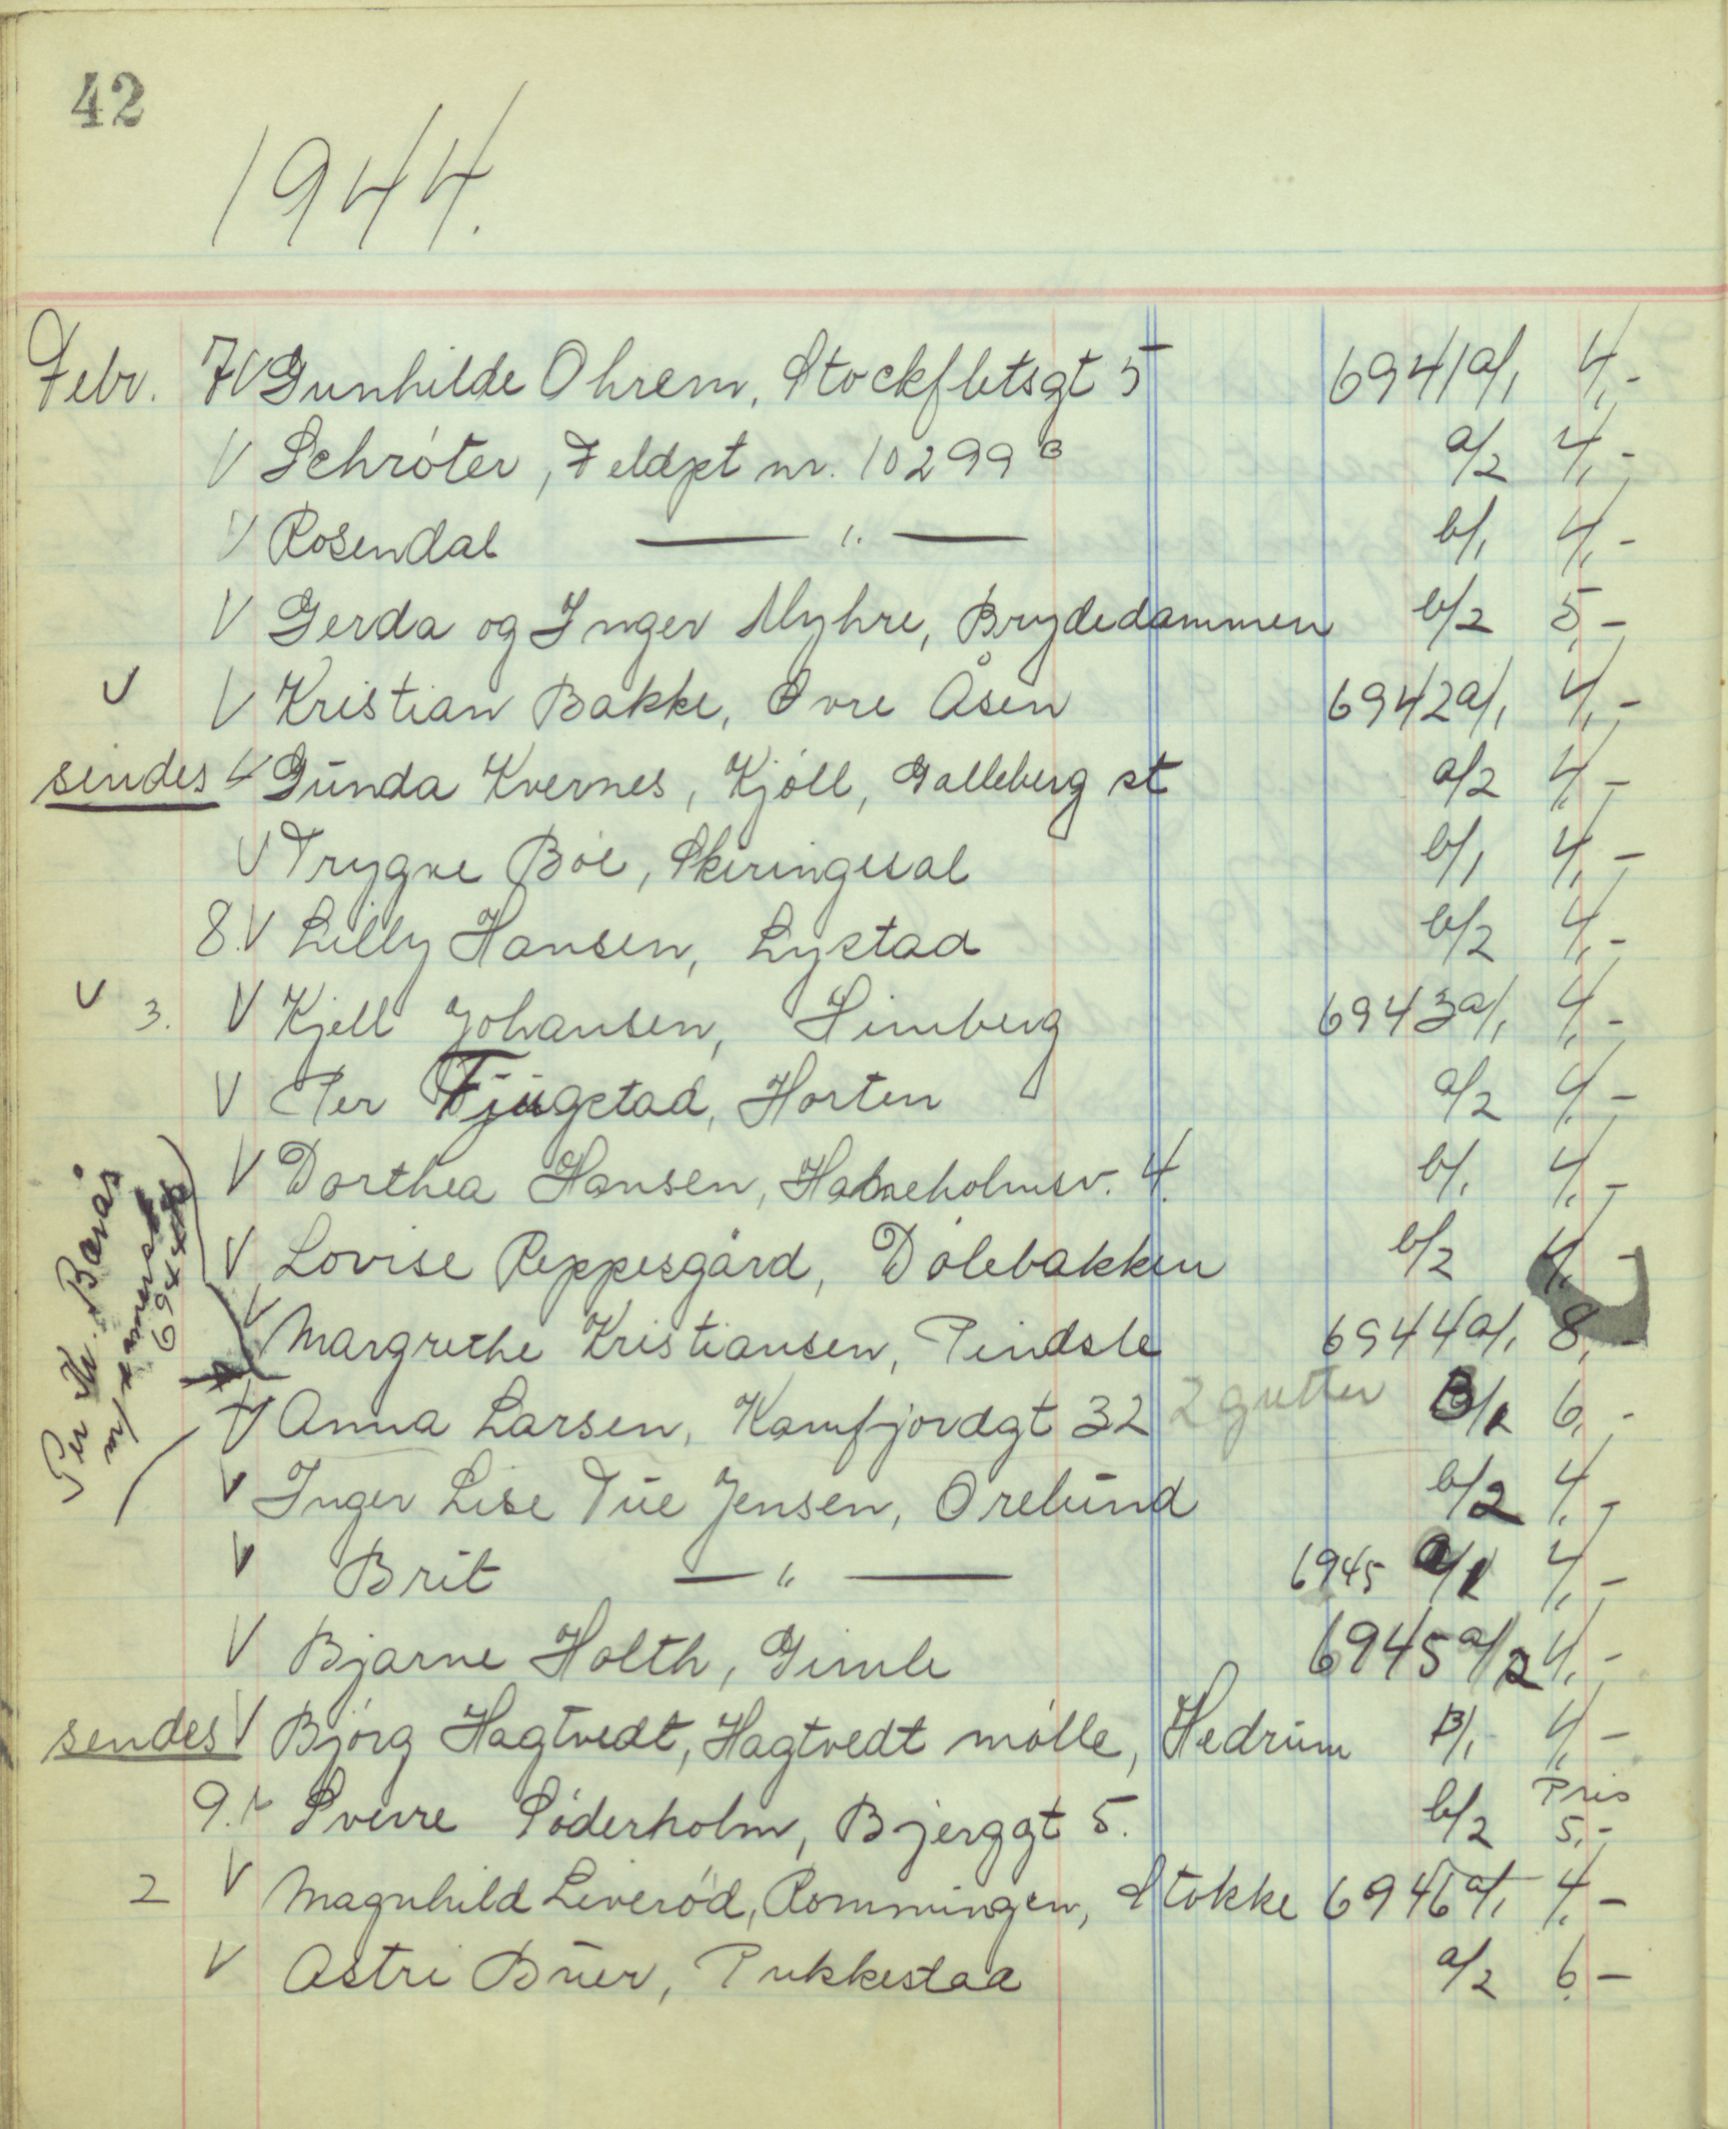 42
1944.
Febr. 7 V Gunhilde Ohrem, Stockfletsgt 5 6941 a/1 4,-
V Schróter, Feldpt nr. 10299 B a/2 4,-
V Rosendal — " — b/1 4,-
V Gerda og Inger Myhre, Brydedammen b/2 5,-
V V Kristian Bakke, Øvre Åsen 6942 a/1 4,-
sendes V Gunda Kvernes, Kjóll, Galleberg st a/2 4,-
V Trygve Bóe, Skiringssal b/1 4,-
8. V Lilly Hansen, Lystad b/2 4,-
V 3. V Kjell Johansen, Himberg 6943 a/1 4,-
V Per Fjugstad, Horten a/2 4,-
V Dorthea Hansen, Haneholmsv. 4. b/1 4,-
V Lovise Reppesgård, Dólebakken b/2 4,-
V Margrethe Kristiansen, Pindsle 6944 a/1 8,-
Per Kr. Barås
m/
6944
V Anna Larsen, Kamfjordgt 32 2 gutter B/1 6,-
V Inger Lise Tue Jensen, Orelund b/2 4,-
V Brit — " — 6945 a/1 4,-
V Bjarne Holth, Gimle 6945 a/2 4,-
sendes V Bjórg Hagtvedt, Hagtvedt mólle, Hedrum B/1 4,-
9. V Sverre Sóderholm, Bjerggt 5. b/2 Pris 5,-
2 V Magnhild Liveród, Rommingen, Stokke 6946 a/1 4,-
V Astri Buer, Pukkestad a/2 6,-